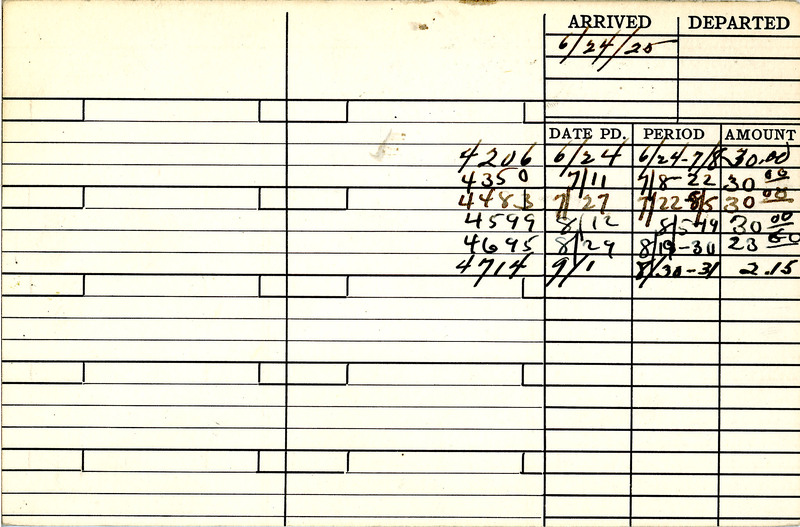 ARRIVED DEPARTED
6/24/25
DATE PD. PERIOD AMOUNT
4206 6/24 6/24-7/8 30.00
4350 7/11 7/8-22 30 00
4483 7/27 7/22-8/5 30 00
4599 8/12 8/5-19 30 00
4695 8/29 8/19-30 23 60
4714 9/1 8/30-31 2.15